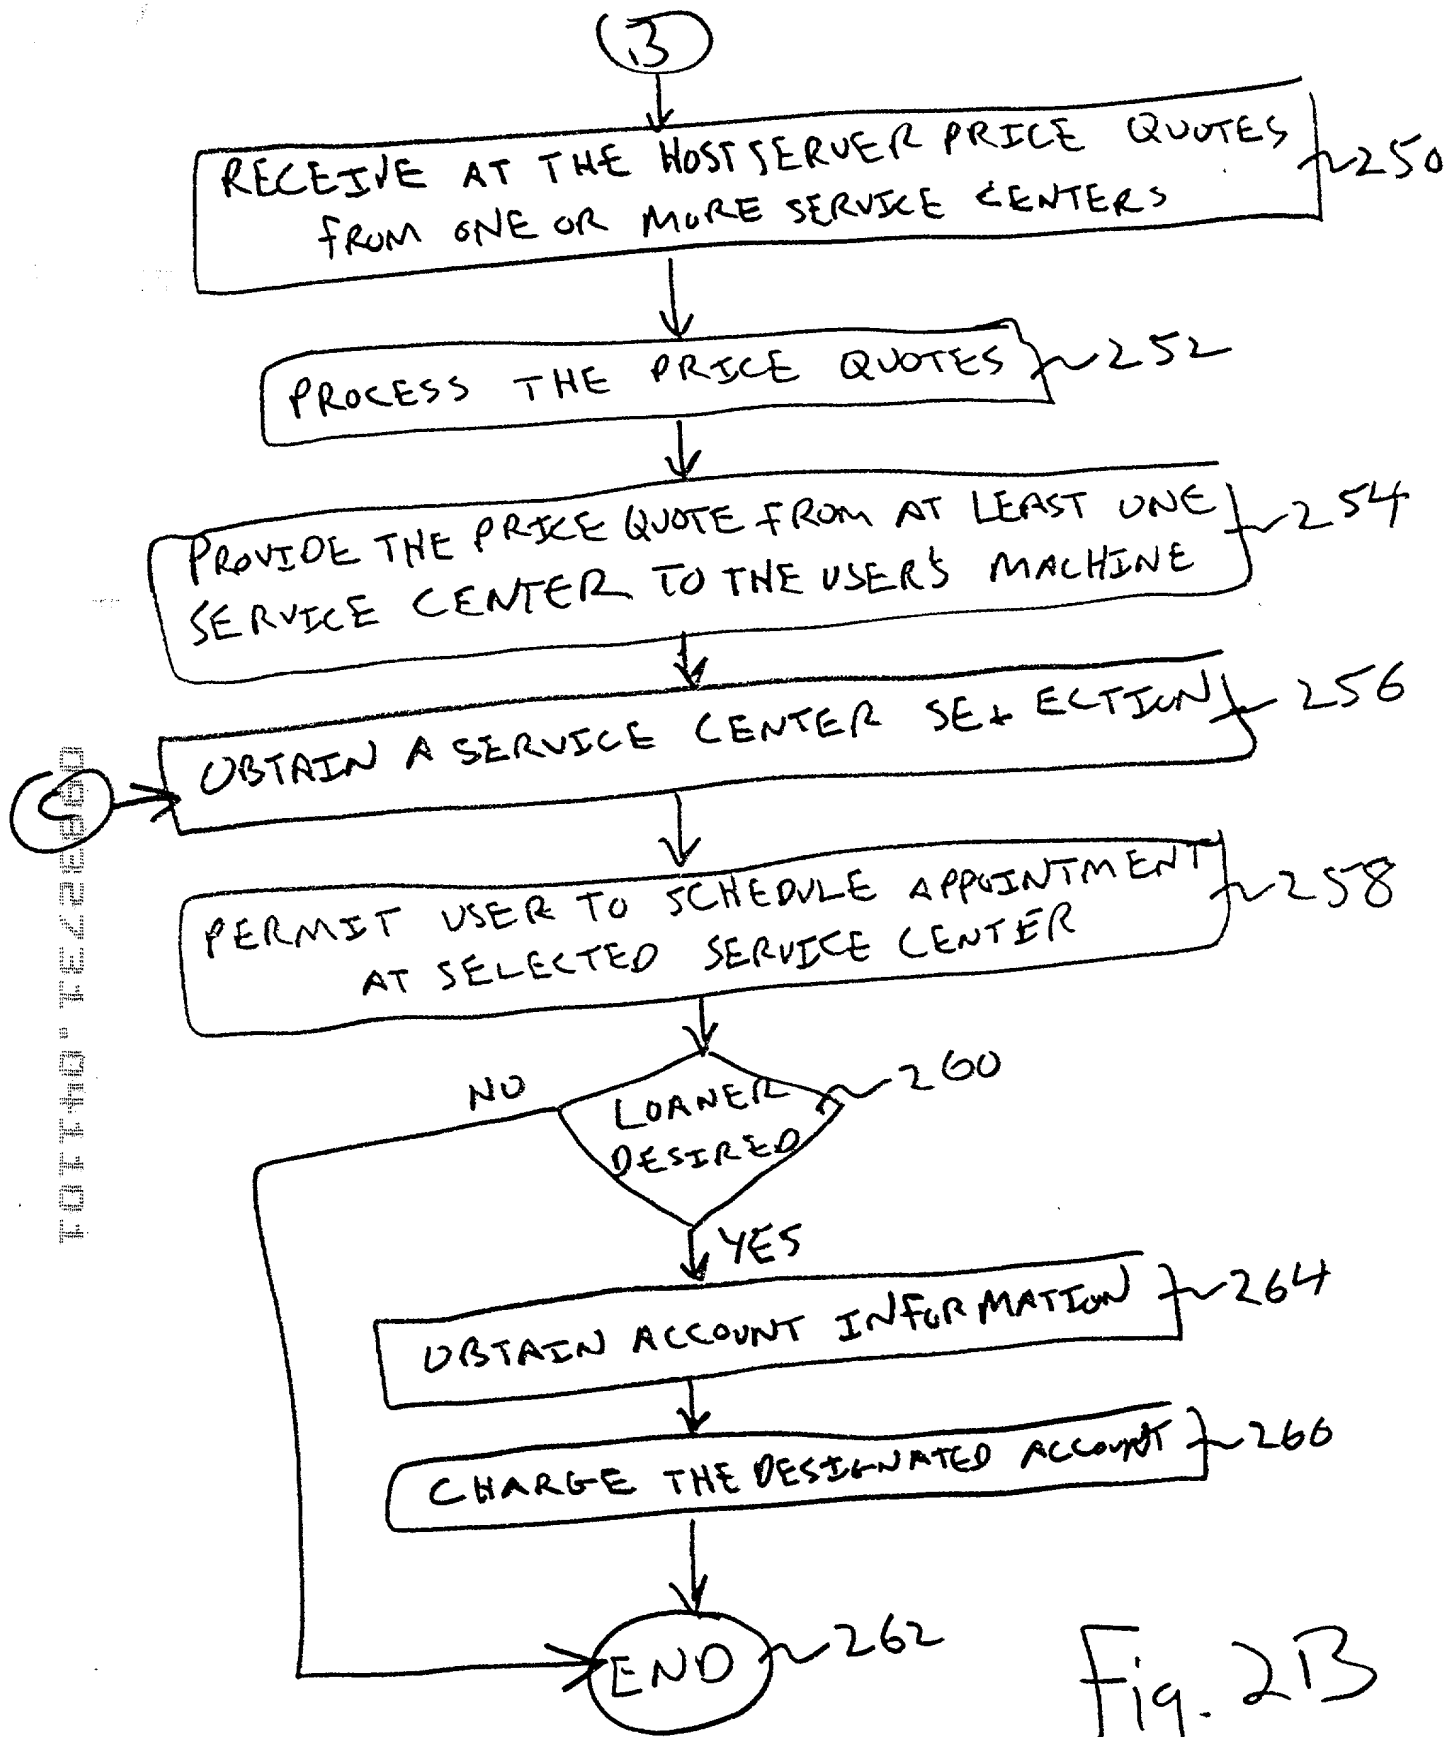 B
RECEIVE AT THE HOST SERVER PRICE QUOTES
FROM ONE OR MORE SERVICE CENTERS
250
PROCESS THE PRICE QUOTES
252
PROVIDE THE PRICE QUOTE FROM AT LEAST ONE
SERVICE CENTER TO THE USER'S MACHINE
254
OBTAIN A SERVICE CENTER SELECTION
256
C
PERMIT USER TO SCHEDULE APPOINTMENT
AT SELECTED SERVICE CENTER
258
NO
LOANER
DESIRED
260
YES
OBTAIN ACCOUNT INFORMATION
264
CHARGE THE DESIGNATED ACCOUNT
266
END
262
Fig. 2B